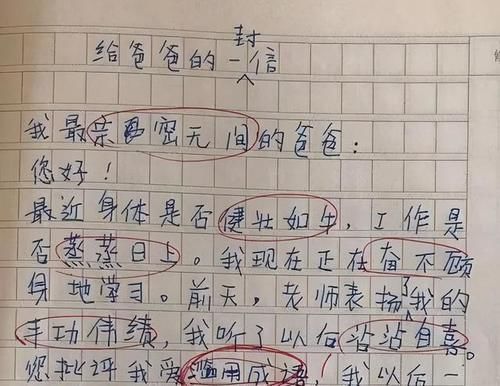 给爸爸的一封信
我最亲密无间的爸爸：
您好！
最近身体是否健壮如牛，工作是
否蒸蒸日上。我现在正在奋不顾
身地学习。前天，老师表扬了我的
丰功伟绩，我听了以后沾沾自喜。
您批评我爱滥用成语，我以后一